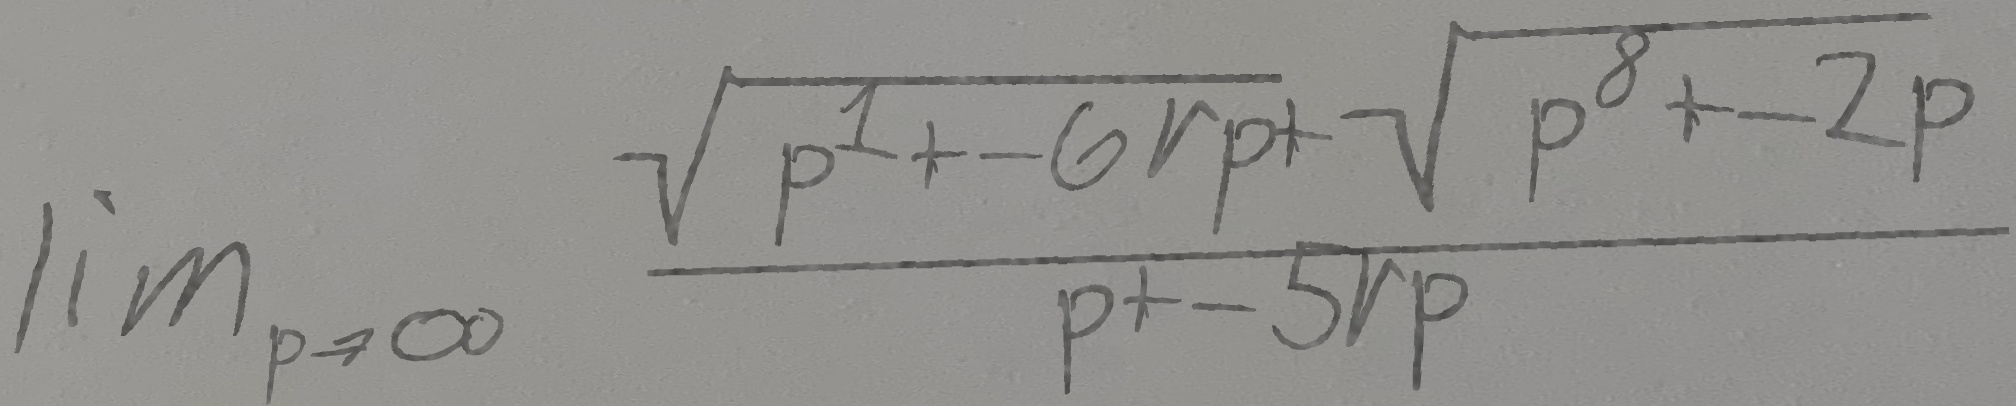 \lim_{p \to \infty} \frac{\sqrt{p^1 + -6rp} + \sqrt{p^8 + -2p}}{p + -5rp}